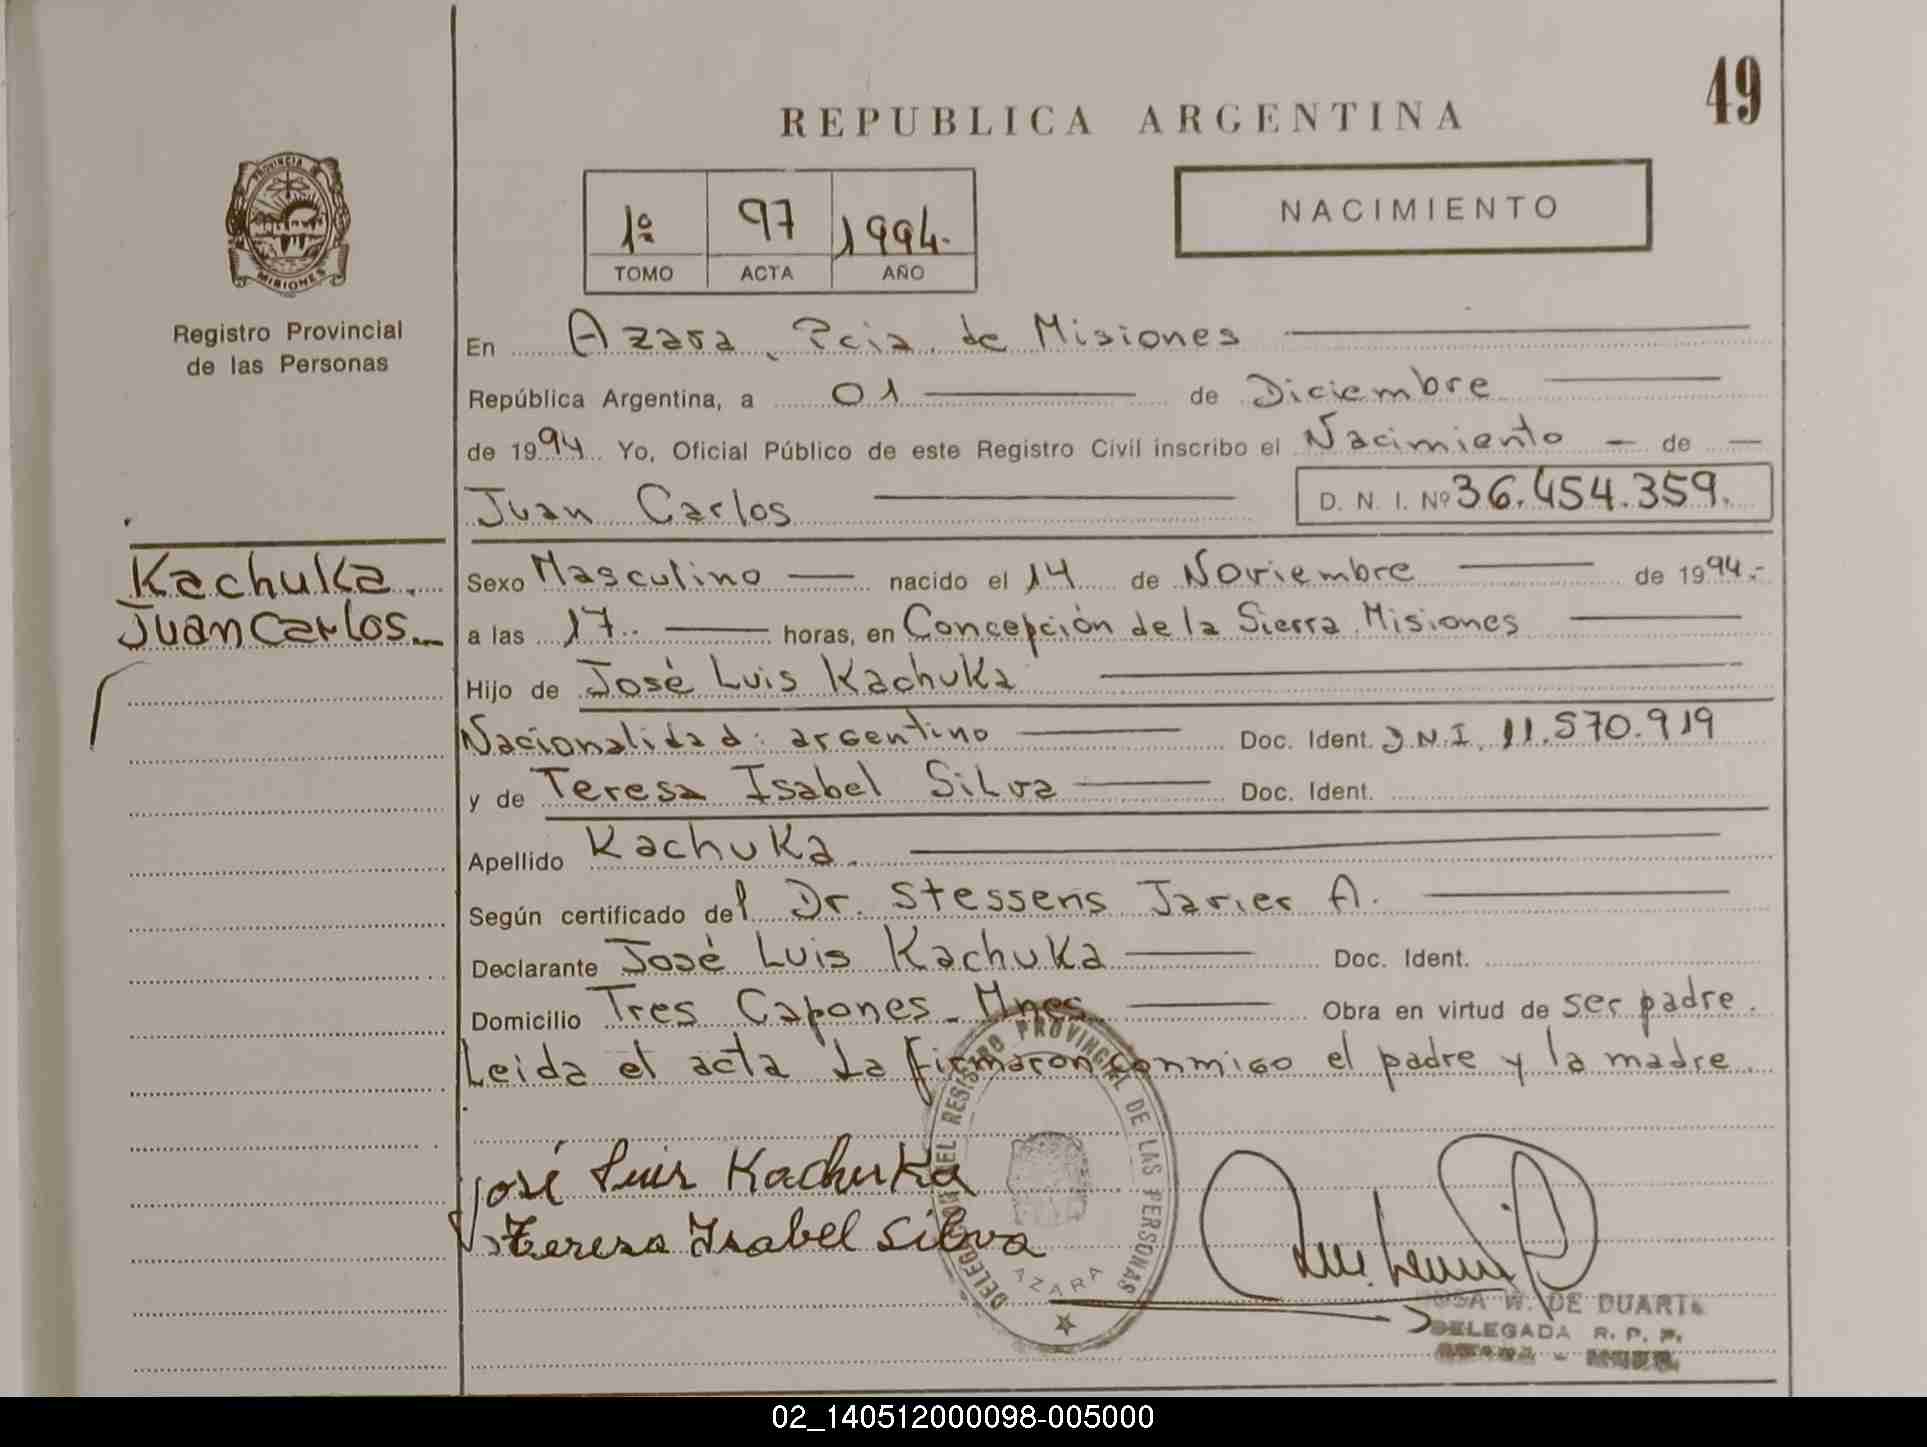 49
REPUBLICA ARGENTINA
PROVINCIA DE
MISIONES
Registro Provincial
de las Personas
1º 97 1994.
TOMO ACTA AÑO
NACIMIENTO
En Azara, Pcia. de Misiones
República Argentina, a 01 de Diciembre
de 1994 Yo, Oficial Público de este Registro Civil inscribo el Nacimiento - de -
Juan Carlos D. N. I. Nº 36.454.359.
Kachuka.
Juan Carlos.
Sexo Masculino nacido el 14 de Noviembre de 1994.-
a las 17. horas, en Concepción de la Sierra Misiones
Hijo de José Luis Kachuka
Nacionalidad: argentino Doc. Ident. D.N.I. 11.570.919
y de Teresa Isabel Silva Doc. Ident.
Apellido Kachuka.
Según certificado del Dr. Stessens Javier A.
Declarante José Luis Kachuka Doc. Ident.
Domicilio Tres Capones - Mnes Obra en virtud de ser padre.
Leida el acta la firmaron conmigo el padre y la madre.
José Luis Kachuka
Teresa Isabel Silva
DELEGACION DEL REGISTRO PROVINCIAL DE LAS PERSONAS
AZARA
ROSA W. DE DUARTE
DELEGADA R. P. P.
02_140512000098-005000